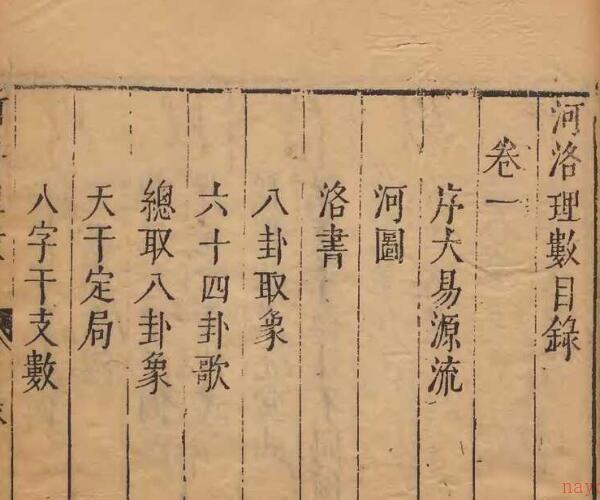 河洛理數目錄
卷一
序大易源流
河圖
洛書
八卦取象
六十四卦歌
總取八卦象
天干定局
八字干支數